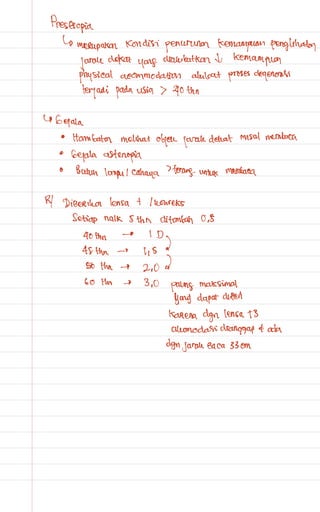 Presbiopia
↳ merupakan kondisi penurunan kemampuan penglihatan
jarak dekat yang diakibatkan ↓ kemampuan
physical accommodation akibat proses degenerasi
terjadi pada usia > 40 thn
↳ Gejala
• Hambatan melihat objek jarak dekat misal membaca
• Gejala astenopia
• Butuh lampu / cahaya > terang untuk membaca
R/ Diberikan lensa + / konveks
Setiap naik 5 thn ditambah 0,5
40 thn → 1 D
45 thn → 1,5
50 thn → 2,0
60 thn → 3,0 paling maksimal
yang dapat diberi
karena dgn lensa +3
akomodasi dianggap t ada
dgn jarak baca 33 cm